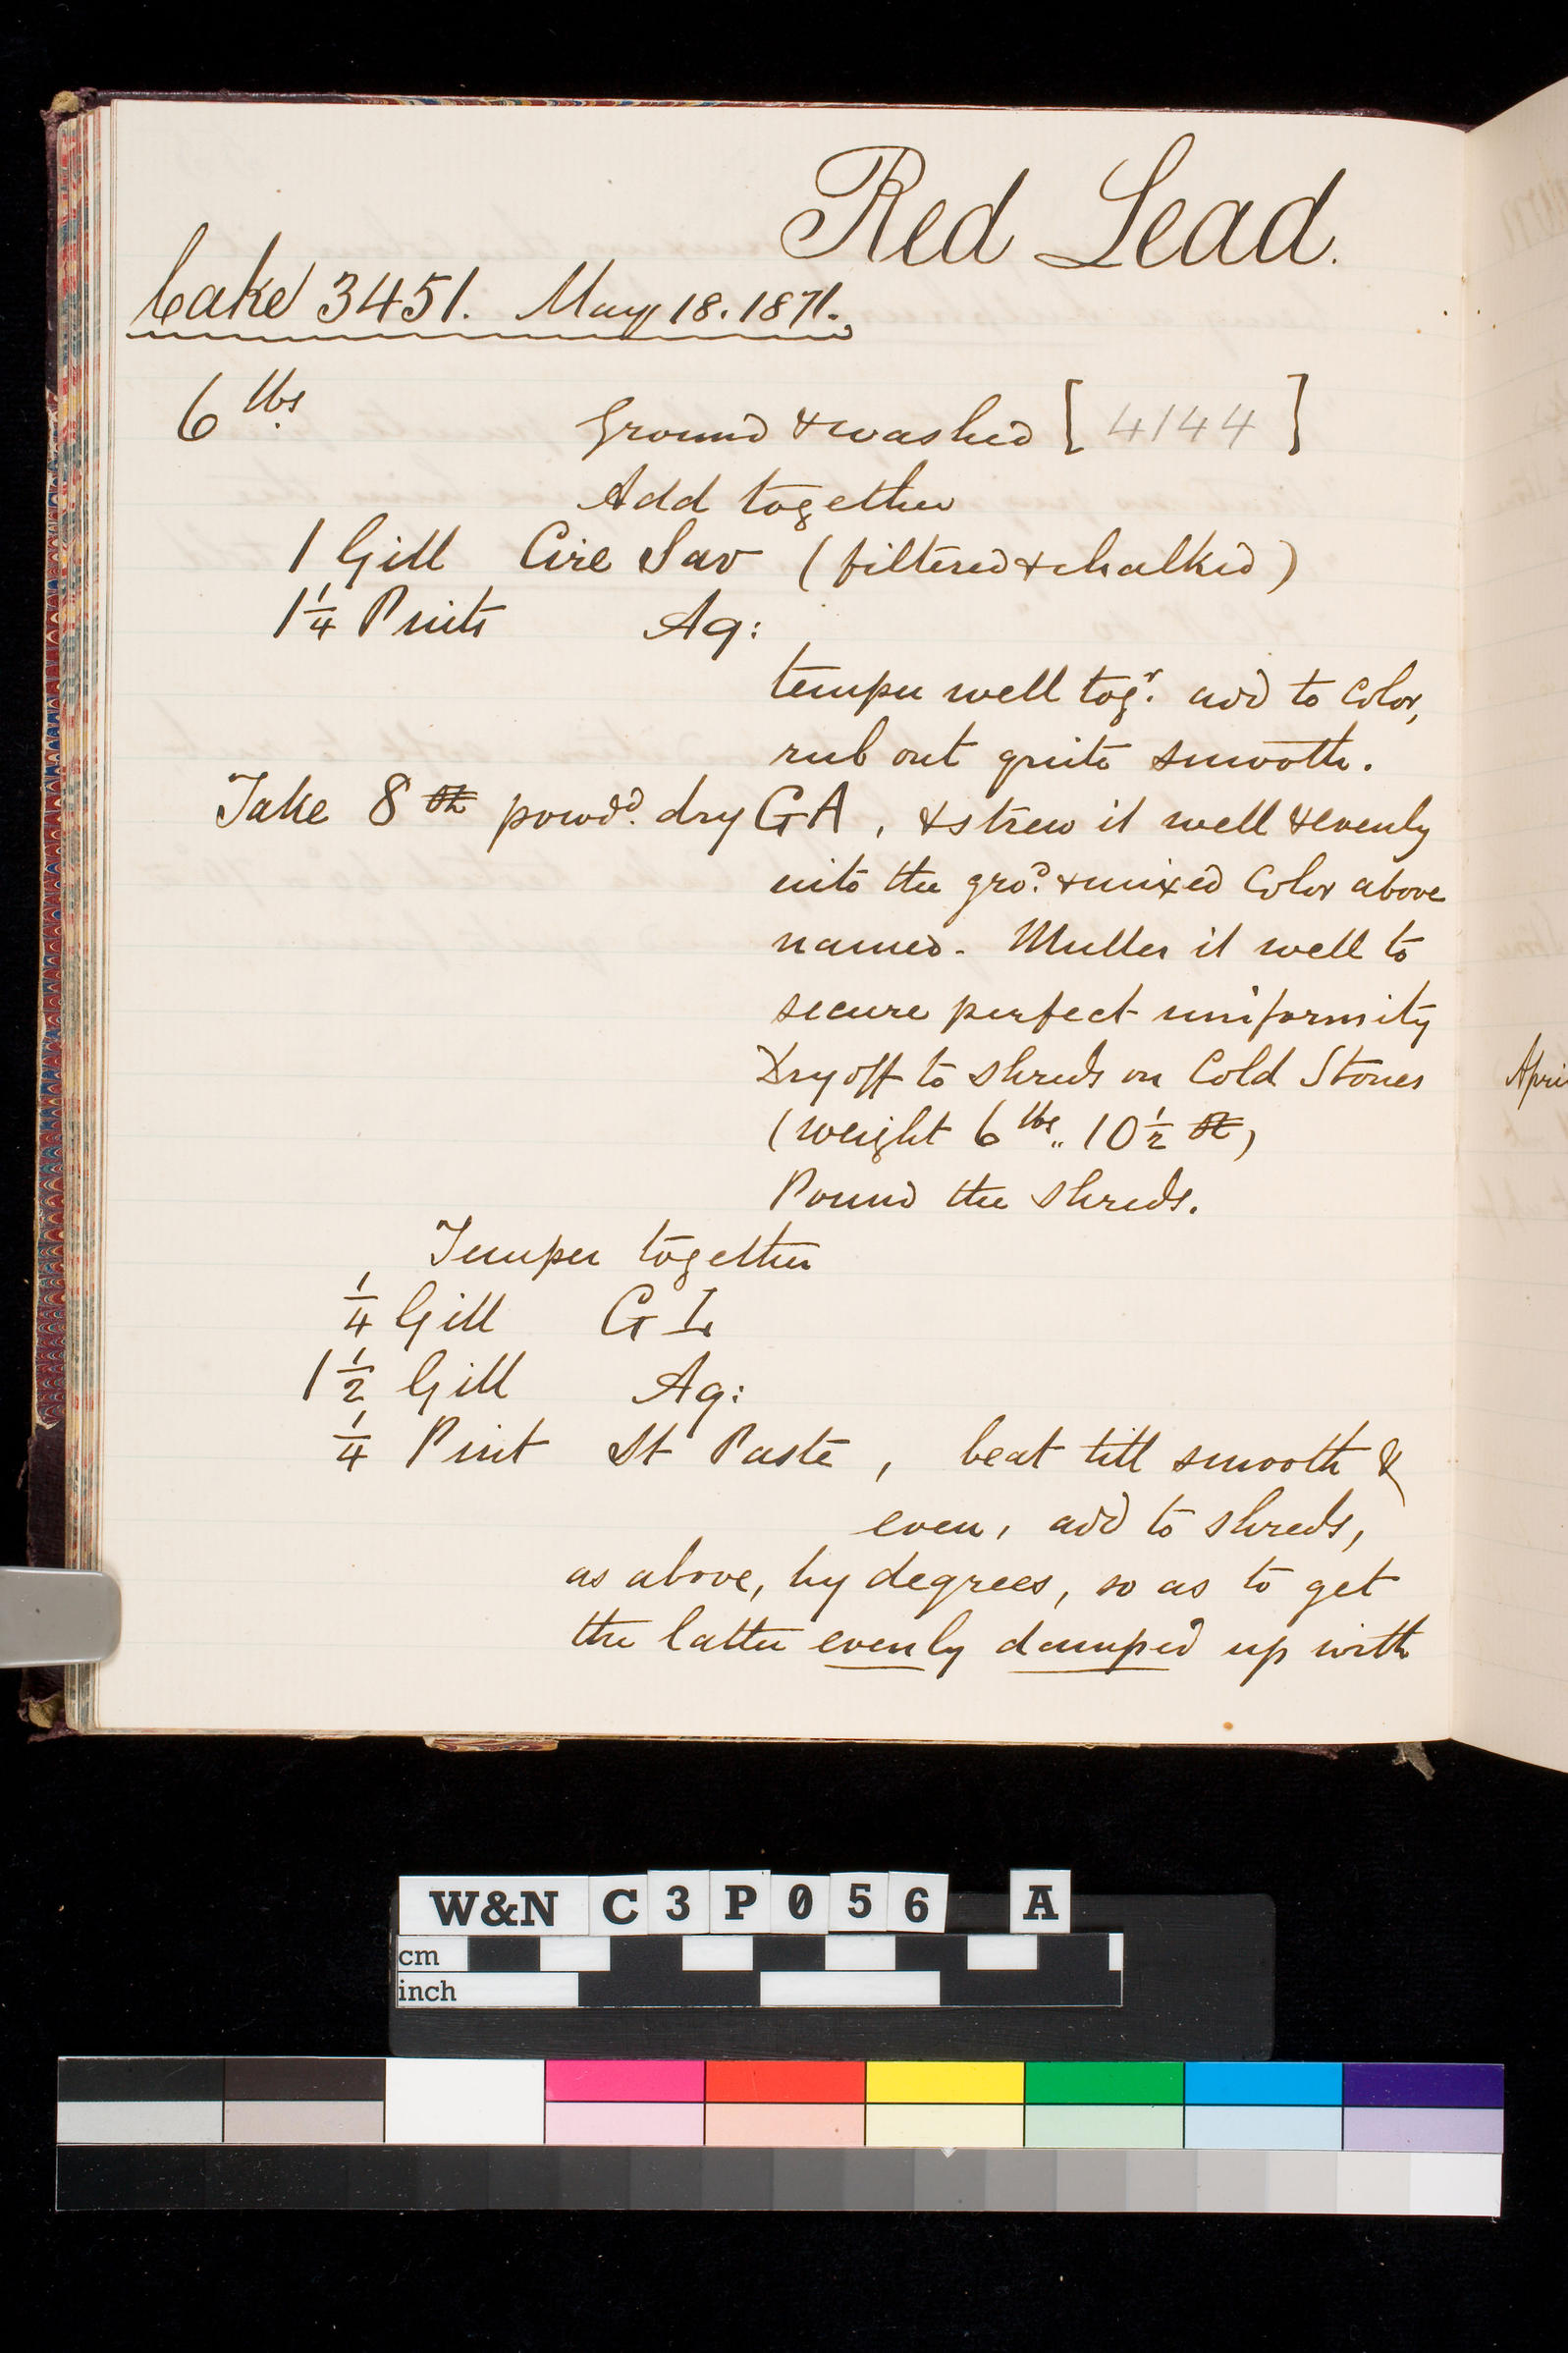 Red Lead.
Cake 3451. May 18. 1871.
6 lbs. Ground & washed [4144]
Add together
1 Gill Cire Sav (filtered & chalked)
1 1/4 Pints Aq:
temper well togr. add to Color,
rub out quite smooth.
Take 8 powdd. dry GA, & strew it well & evenly
into the grod. & mixed Color above
named. Muller it well to
secure perfect uniformity
Dry off to shreds on Cold Stones
(weight 6 lbs.. 10 1/2 )
Pound the shreds.
Temper together
1/4 Gill G L
1 1/2 Gill Aq:
1/4 Pint St Paste, beat till smooth &
even, add to shreds,
as above, by degrees, so as to get
the latter evenly damped up with
Apri
W&N C3P056 A
cm
inch